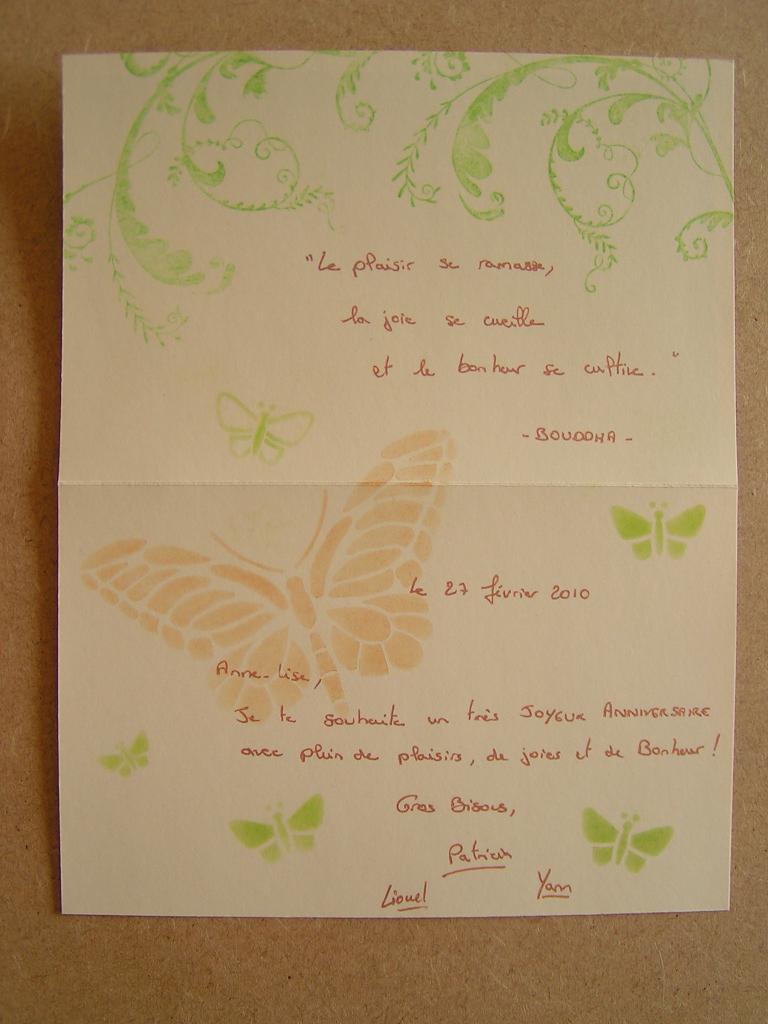 "Le plaisir se ramasse,
la joie se cueille
et le bonheur se cultive."
- BOUDDHA -
le 27 février 2010
Anne-Lise,
Je te souhaite un très JOYEUX ANNIVERSAIRE
avec plein de plaisirs, de joies et de Bonheur !
Gros Bisous,
Patricia
Lionel Yann